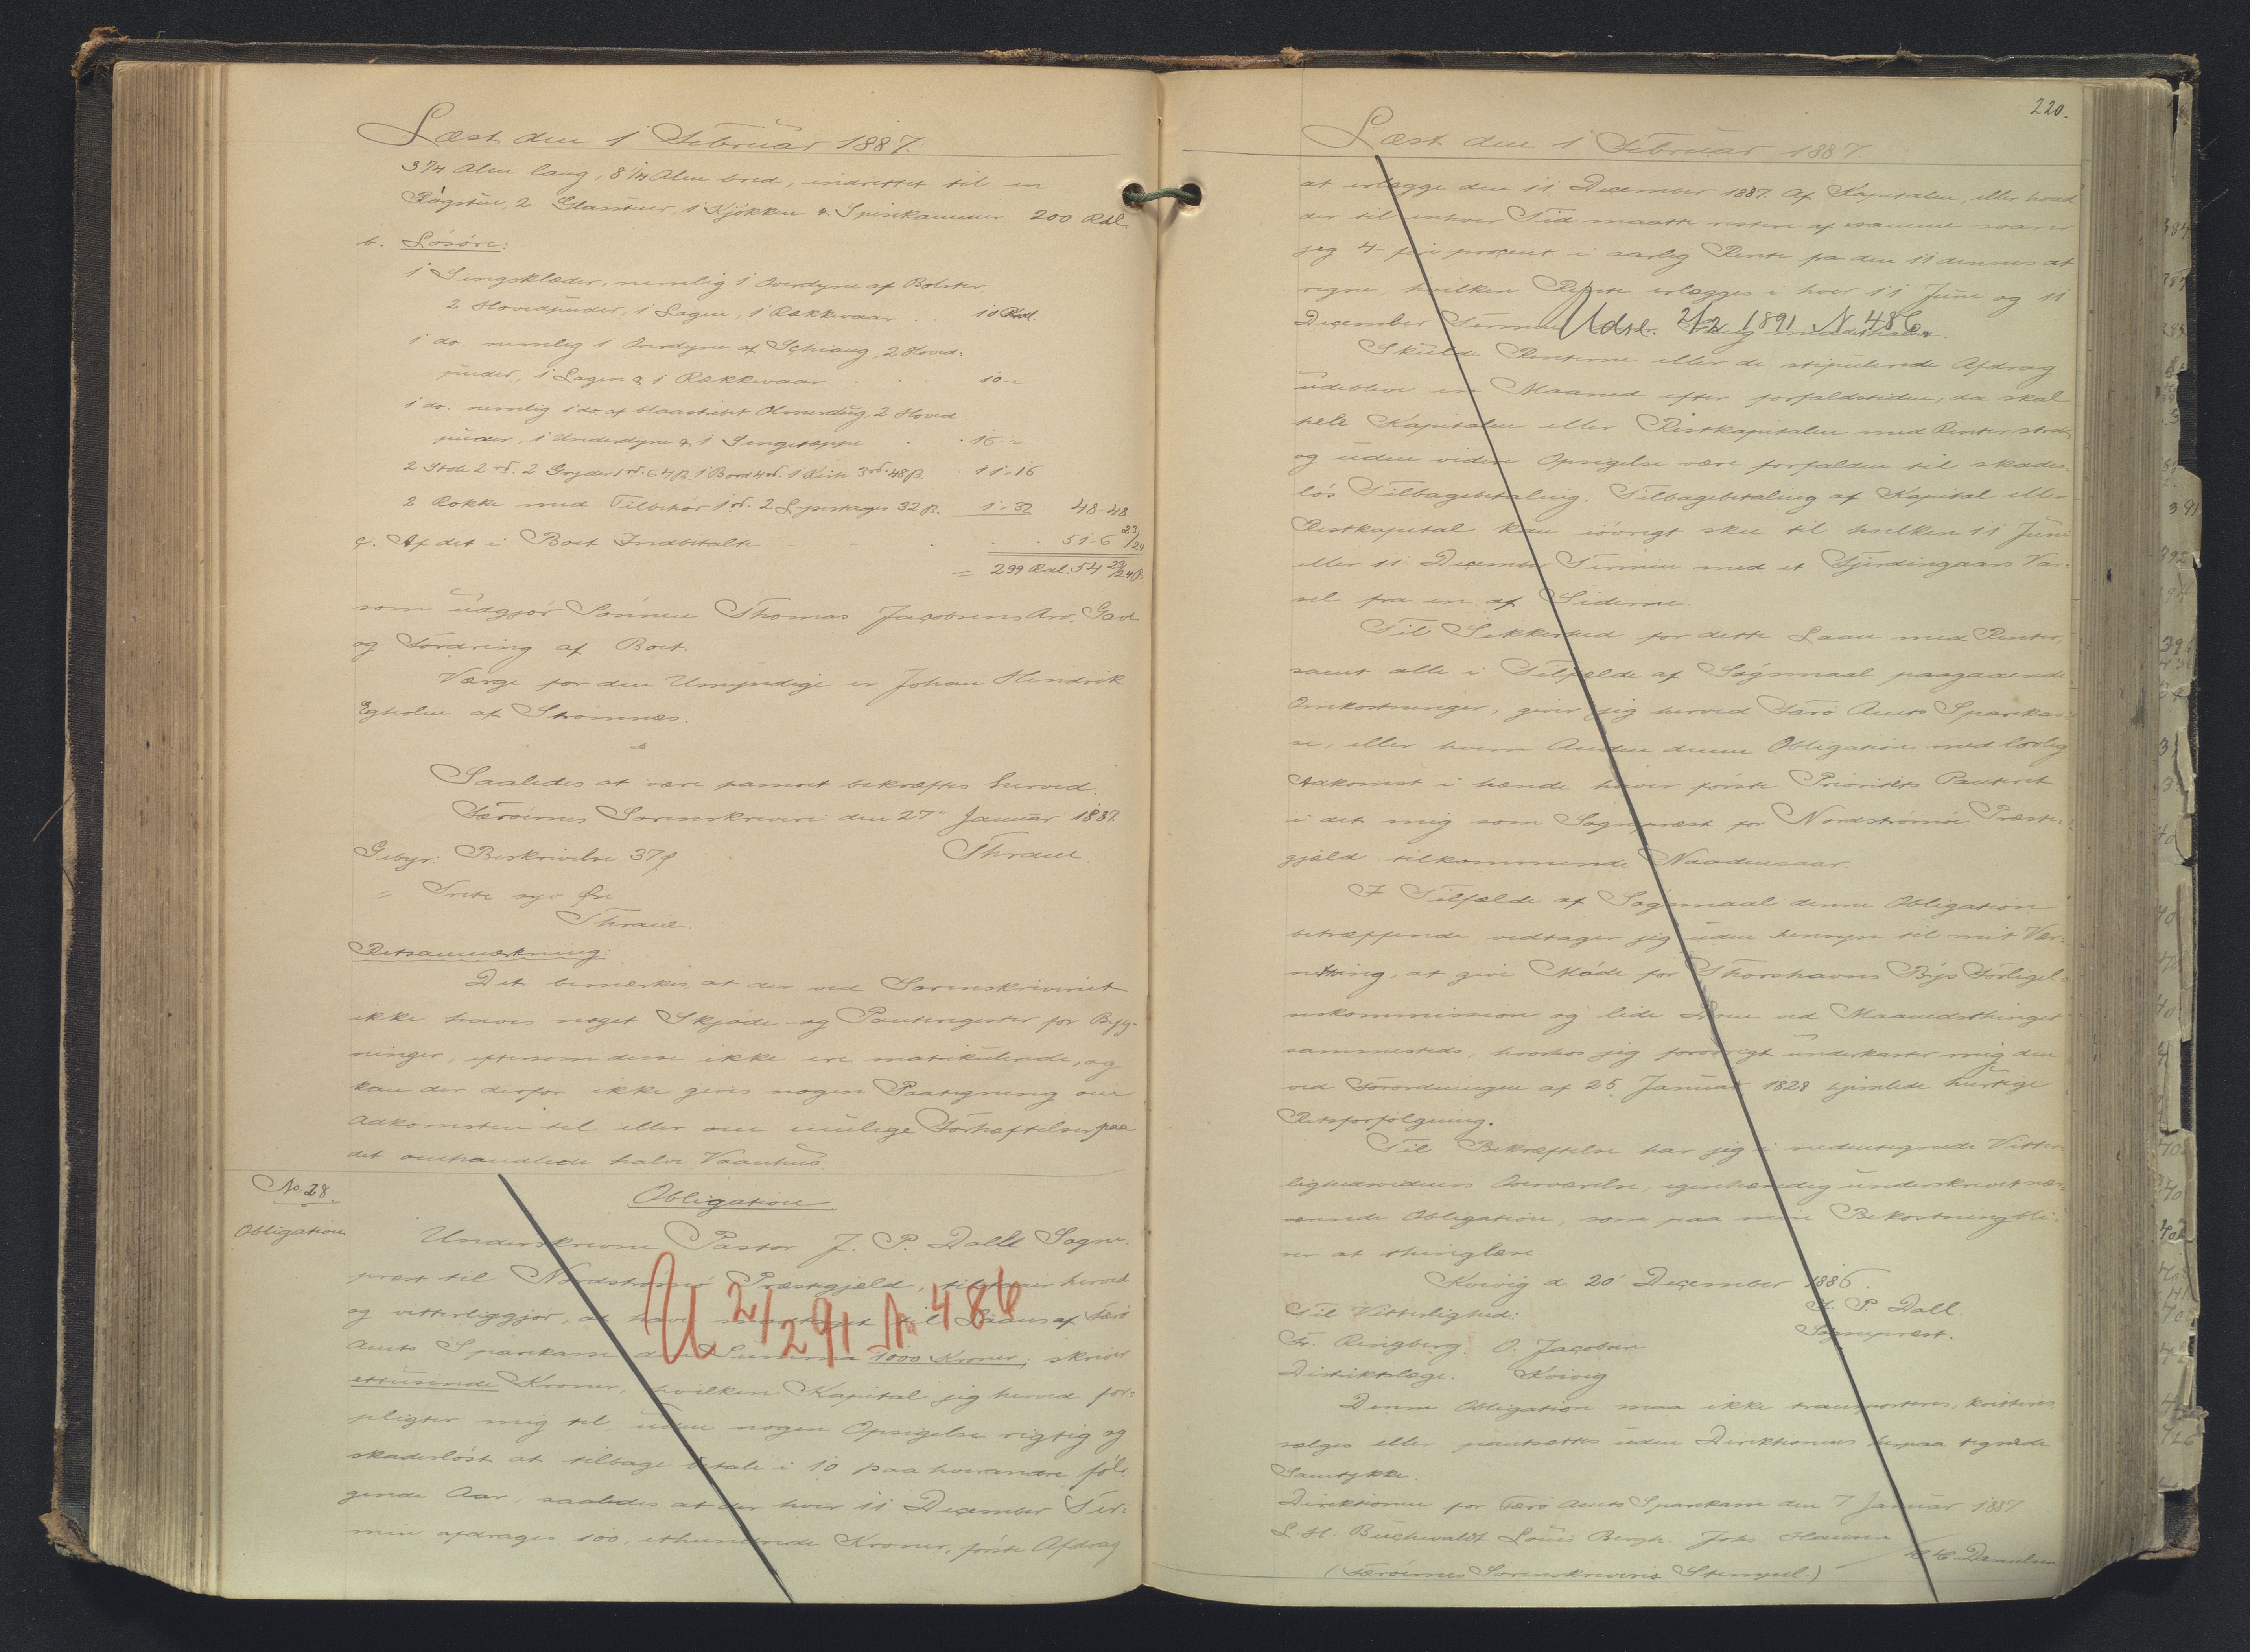 Læst den 1 Februar 1887.
3 7/4 Alen lang, 8 1/4 Alen bred, indrettet til en
Røgstue, 2 Glasstuer, 1 Kjøkken & Spisekammer 200 Rdl.
b. Løsøre:
1 Sengeklæder, nemlig 1 Overdyne af Bolster,
2 Hovedpuder, 1 Lagen, 1 Rækkevaar . 10 Rdl.
1 do. nemlig 1 Overdyne af , 2 Hoved=
puder, 1 Lagen & 1 Rækkevaar . . 10 -"
1 do. nemlig 1 do. af blaastribet Olmerdug, 2 Hoved
puder, 1 Underdyne & 1 Sengetæppe . . 16 -"
2 Stole 2 rd. 2 Gryder 1 rd. 64 ß. 1 Bord 4 rd. 1 Kiste 3 rd. 48 ß. . 11 - 16
2 Rokke med Tilbehør 1 rd. 2 32 ß. 1 - 32 48 - 48
c. Af det i Boet Indbetalte - . . 51 - 6 23/24
= 299 Rdl. 54 23/24 ß
som udgjør Sønnen Thomas Jacobsens Arv, Gave
og Fordring af Boet.
Værge for den Umyndige er Johan Hendrik
Egholm af Strømnæs.
Saaledes at være passeret bekræftes herved.
Færøernes Sorenskriveri den 27 Januar 1887.
Gebyr: Beskrivelse 37 ø Thrane
= Treti syv Øre
Thrane
Retsanmærkning:
Det bemærkes, at der ved Sorenskriveriet
ikke haves noget Skjøde- og Panteregister for Byg-
ninger, eftersom disse ikke ere matrikulerede, og
kan der derfor ikke gives nogen Paategning om
Adkomsten til eller om mulige Forhæftelser paa
det omhandlede halve Vaanhus.
No. 28.
Obligation
Obligation.
Underskrevne Pastor J. P. Dall Sogne-
præst til Nordstrømø Præstegjeld, tilstaaer herved
og vitterliggjør, at have modtaget til Laans af Færø
Amts Sparekasse den Summa 1000 Kroner, skriver
ettusinde Kroner, hvilken Kapital jeg herved for=
pligter mig til, uden nogen Opsigelse rigtig og
skadesløst at tilbage betale i 10 paa hverandre føl=
gende Aar, saaledes at der hver 11 December Ter=
min afdrages 100, ethundrede Kroner, første Afdrag
U 2/2 91 N 486
220.
Læst den 1 Februar 1887.
at erlægge den 11 December 1887. Af Kapitalen, eller hvad
der til enhver Tid maatte restere af samme svarer
jeg 4 - fire procent i aarlig Rente fra den 11 dennes at
regne, hvilken Rente erlægges i hver 11 Juni og 11
December Termin
Udsl. 2/2 1891 N 486.
Skulde Renterne eller de stipulerede Afdrag
udeblive en Maaned efter forfaldstiden, da skal
hele Kapitalen eller Restkapitalen med Renter strax
og uden videre Opsigelse være forfalden til skades=
løs Tilbagebetaling. Tilbagebetaling af Kapital eller
Restkapital kan iøvrigt ske til hvilken 11 Juni
eller 11 December Termin med et Fjerdingaars Var=
sel fra en af Siderne.
Til Sikkerhed for dette Laan med Renter,
samt alle i Tilfælde af Søgnmaal paagaaende
Omkostninger, giver jeg herved Færø Amts Sparekas=
se, eller hvem Anden denne Obligation med lovlig
Adkomst i hænde haver første Prioritets Panteret
i det mig som Sognepræst for Nordstrømø Præste=
gjæld tilkommende Naadensaar.
I Tilfælde af Søgnmaal denne Obligation
betræffende vedtager jeg uden hensyn til mit Vær=
neting, at give Møde for Thorshavns Bys Forligel=
seskommission og lide Dom ved Maanedsthinget
sammesteds, hvorhos jeg forøvrigt underkaster mig den
ved Forordningen af 25 Januar 1828 hjemlede hurtige
Retsforfølgning.
Til Bekræftelse har jeg i nedentegnede Vitter=
lighedsvidners Overværelse, egenhændig underskrevet nær=
værende Obligation, som paa min Bekostning bli=
ver at thinglæse.
Kvivig d 20 December 1886.
Til Vitterlighed: J. P. Dall.
Fr. Ringberg. O. Jacobsen Sognepræst.
Distriktslæge. Kvivig
Denne Obligation maa ikke transporteres, kvitteres
sælges eller pantsættes uden Direktionens herpaa tegnede
Samtykke.
Direktionen for Færø Amts Sparekasse den 7 Januar 1887
L. H. Buchwaldt Louis Bergh. Johs Hansen
Danielsen
(Færøernes Sorenskriveris Stempel.)